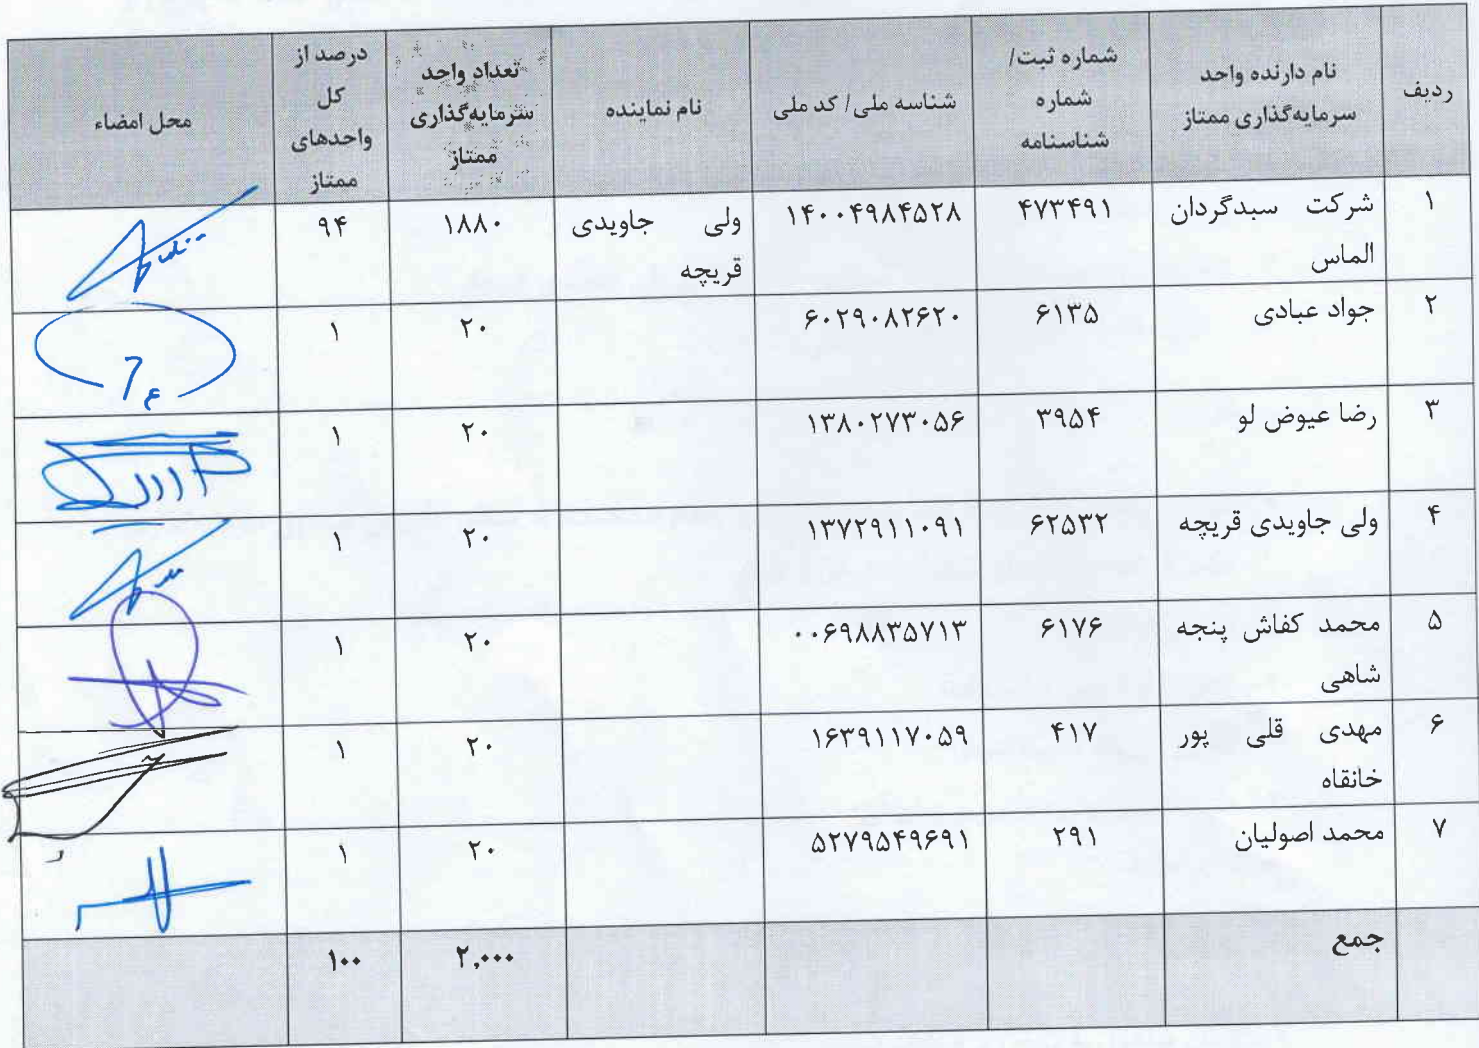 ردیف
نام دارنده واحد
سرمایه‌گذاری ممتاز
شماره ثبت/
شماره
شناسنامه
شناسه ملی/ کد ملی
نام نماینده
تعداد واحد
سرمایه‌گذاری
ممتاز
درصد از
کل
واحدهای
ممتاز
محل امضاء
۱
شرکت سبدگردان
الماس
۴۷۳۴۹۱
۱۴۰۰۴۹۸۴۵۲۸
ولی جاویدی
قریچه
۱۸۸۰
۹۴
۲
جواد عبادی
۶۱۳۵
۶۰۲۹۰۸۲۶۲۰
۲۰
۱
۳
رضا عیوض لو
۳۹۵۴
۱۳۸۰۲۷۳۰۵۶
۲۰
۱
۴
ولی جاویدی قریچه
۶۲۵۳۲
۱۳۷۲۹۱۱۰۹۱
۲۰
۱
۵
محمد کفاش پنجه
شاهی
۶۱۷۶
۰۰۶۹۸۸۳۵۷۱۳
۲۰
۱
۶
مهدی قلی پور
خانقاه
۴۱۷
۱۶۳۹۱۱۷۰۵۹
۲۰
۱
۷
محمد اصولیان
۲۹۱
۵۲۷۹۵۴۹۶۹۱
۲۰
۱
جمع
۲,۰۰۰
۱۰۰